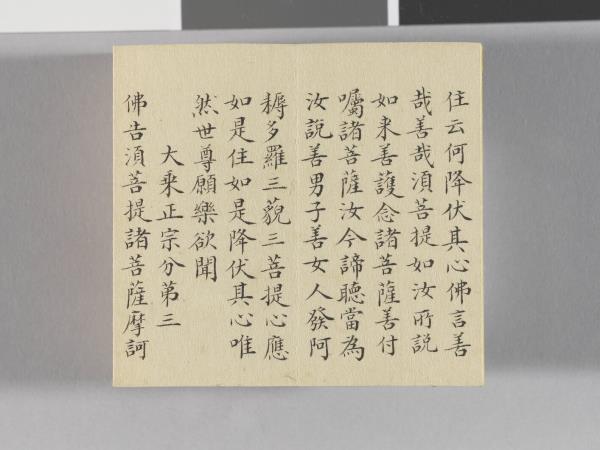 住云何降伏其心佛言善
哉善哉須菩提如汝所説
如来善護念諸菩薩善付
囑諸菩薩汝今諦聽當為
汝說善男子善女人發阿
耨多羅三藐三菩提心應
如是住如是降伏其心唯
然世尊願樂欲聞
大乘正宗分第三
佛告須菩提諸菩薩摩訶